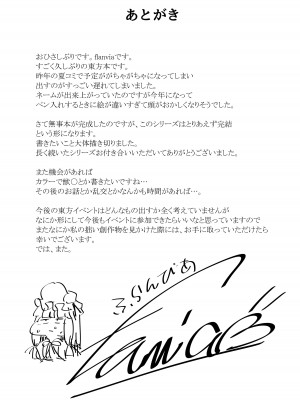 あとがき
おひさしぶりです。flanviaです。
すごく久しぶりの東方本です。
昨年の夏コミで予定ががちゃがちゃになってしまい
出すのがすっごい遅れてしまいました。
ネームが出来上がっていたのですが今年になって
ペン入れするときに絵が違いすぎて頭がおかしくなりそうでした。
さて無事本が完成したのですが、このシリーズはとりあえず完結
という形になります。
書きたいこと大体描き切りました。
長く続いたシリーズお付き合いいただいてありがとうございました。
また機会があれば
カラーで獣〇とか書きたいですね…
その後のお話とか乱交とかなんかも時間があれば…
今後の東方イベントはどんなもの出すか全く考えていませんが
なにか形にして今後もイベントに参加できたらいいなと思っていますので
またなにか私の拙い創作物を見かけた際には、お手に取っていただけたら
幸いでございます。
では、また。
ふらんびあ